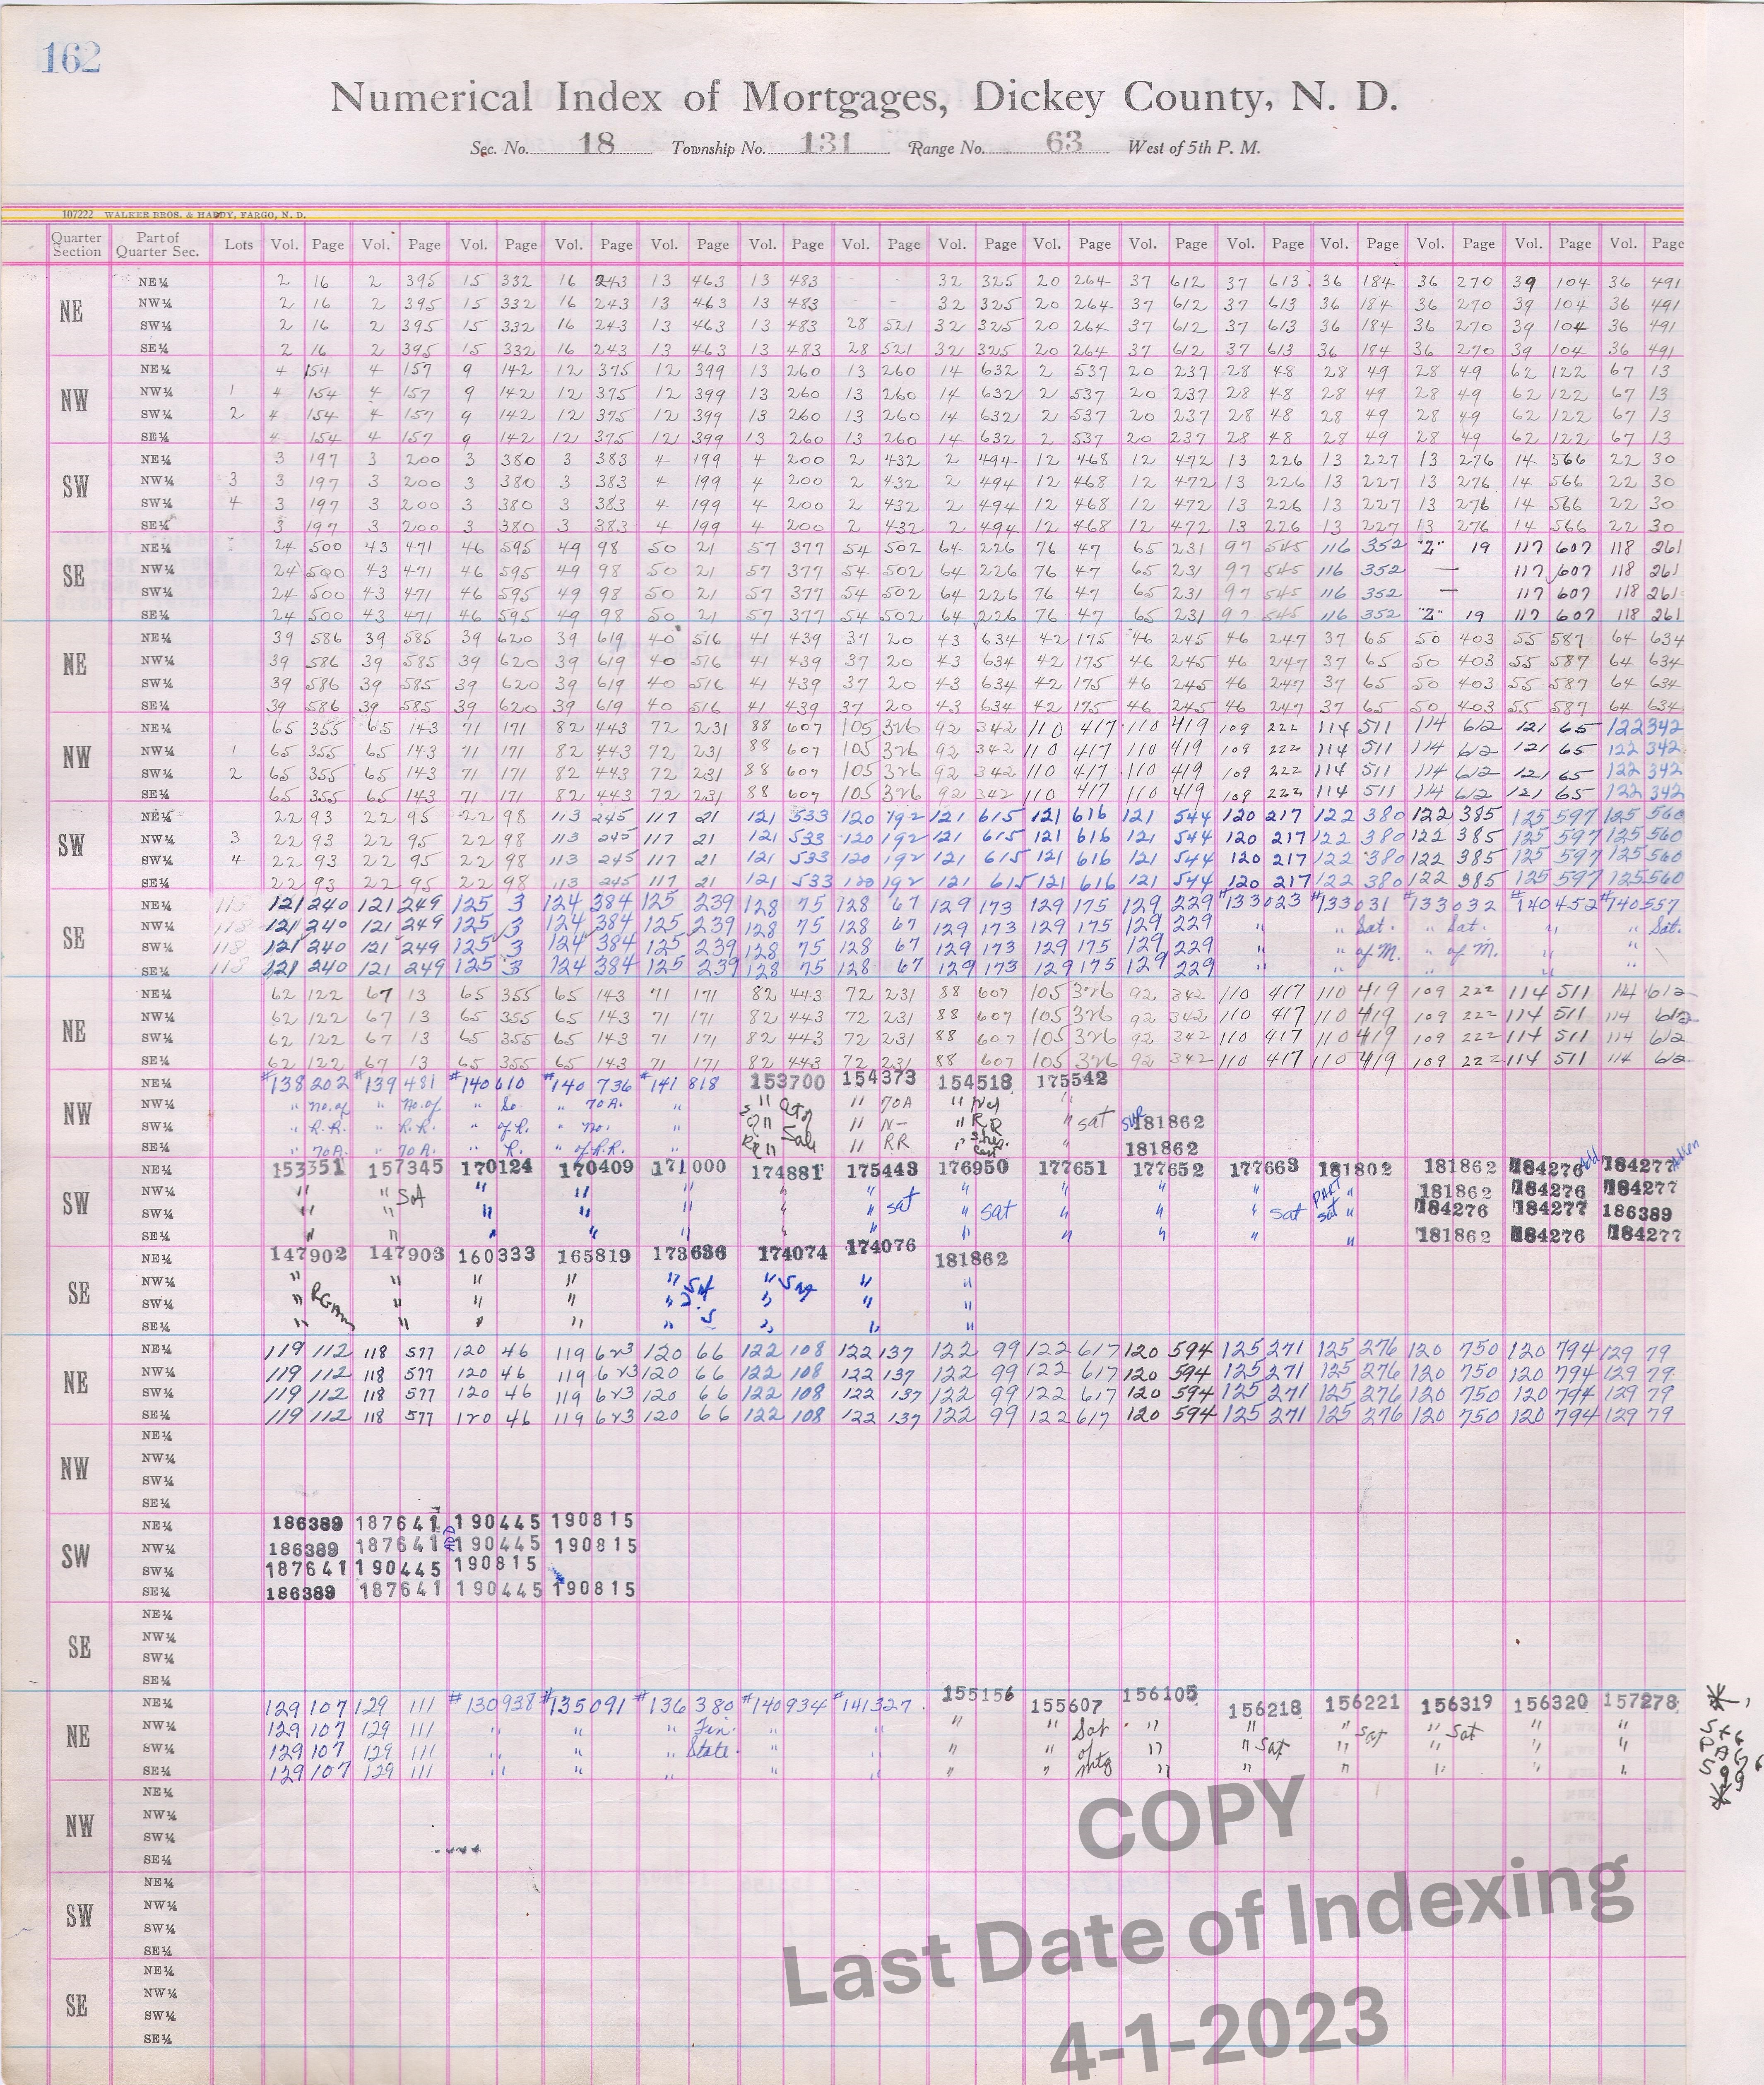 162
Numerical Index of Mortgages, Dickey County, N. D.
Sec. No. 18 Township No. 131 Range No. 63 West of 5th P. M.
107222 WALKER BROS. & HARDY, FARGO, N. D.
Quarter Section Part of Quarter Sec. Lots Vol. Page Vol. Page Vol. Page Vol. Page Vol. Page Vol. Page Vol. Page Vol. Page Vol. Page Vol. Page Vol. Page Vol. Page Vol. Page Vol. Page Vol. Page
NE
NE¼ 2 16 2 395 15 332 16 243 13 463 13 483 32 325 20 264 37 612 37 613 36 184 36 270 39 104 36 491
NW¼ 2 16 2 395 15 332 16 243 13 463 13 483 32 325 20 264 37 612 37 613 36 184 36 270 39 104 36 491
SW¼ 2 16 2 395 15 332 16 243 13 463 13 483 28 521 32 325 20 264 37 612 37 613 36 184 36 270 39 104 36 491
SE¼ 2 16 2 395 15 332 16 243 13 463 13 483 28 521 32 325 20 264 37 612 37 613 36 184 36 270 39 104 36 491
NW
NE¼ 4 154 4 157 9 142 12 375 12 399 13 260 13 260 14 632 2 537 20 237 28 48 28 49 28 49 62 122 67 13
NW¼ 1 4 154 4 157 9 142 12 375 12 399 13 260 13 260 14 632 2 537 20 237 28 48 28 49 28 49 62 122 67 13
SW¼ 2 4 154 4 157 9 142 12 375 12 399 13 260 13 260 14 632 2 537 20 237 28 48 28 49 28 49 62 122 67 13
SE¼ 4 154 4 157 9 142 12 375 12 399 13 260 13 260 14 632 2 537 20 237 28 48 28 49 28 49 62 122 67 13
SW
NE¼ 3 197 3 200 3 380 3 383 4 199 4 200 2 432 2 494 12 468 12 472 13 226 13 227 13 276 14 566 22 30
NW¼ 3 3 197 3 200 3 380 3 383 4 199 4 200 2 432 2 494 12 468 12 472 13 226 13 227 13 276 14 566 22 30
SW¼ 4 3 197 3 200 3 380 3 383 4 199 4 200 2 432 2 494 12 468 12 472 13 226 13 227 13 276 14 566 22 30
SE¼ 3 197 3 200 3 380 3 383 4 199 4 200 2 432 2 494 12 468 12 472 13 226 13 227 13 276 14 566 22 30
SE
NE¼ 24 500 43 471 46 595 49 98 50 21 57 377 54 502 64 226 76 47 65 231 97 545 116 352 "Z" 19 117 607 118 261
NW¼ 24 500 43 471 46 595 49 98 50 21 57 377 54 502 64 226 76 47 65 231 97 545 116 352 — 117 607 118 261
SW¼ 24 500 43 471 46 595 49 98 50 21 57 377 54 502 64 226 76 47 65 231 97 545 116 352 — 117 607 118 261
SE¼ 24 500 43 471 46 595 49 98 50 21 57 377 54 502 64 226 76 47 65 231 97 545 116 352 "Z" 19 117 607 118 261
NE
NE¼ 39 586 39 585 39 620 39 619 40 516 41 439 37 20 43 634 42 175 46 245 46 247 37 65 50 403 55 587 64 634
NW¼ 39 586 39 585 39 620 39 619 40 516 41 439 37 20 43 634 42 175 46 245 46 247 37 65 50 403 55 587 64 634
SW¼ 39 586 39 585 39 620 39 619 40 516 41 439 37 20 43 634 42 175 46 245 46 247 37 65 50 403 55 587 64 634
SE¼ 39 586 39 585 39 620 39 619 40 516 41 439 37 20 43 634 42 175 46 245 46 247 37 65 50 403 55 587 64 634
NW
NE¼ 65 355 65 143 71 171 82 443 72 231 88 607 105 326 92 342 110 417 110 419 109 222 114 511 114 612 121 65 122 342
NW¼ 1 65 355 65 143 71 171 82 443 72 231 88 607 105 326 92 342 110 417 110 419 109 222 114 511 114 612 121 65 122 342
SW¼ 2 65 355 65 143 71 171 82 443 72 231 88 607 105 326 92 342 110 417 110 419 109 222 114 511 114 612 121 65 122 342
SE¼ 65 355 65 143 71 171 82 443 72 231 88 607 105 326 92 342 110 417 110 419 109 222 114 511 114 612 121 65 122 342
SW
NE¼ 22 93 22 95 22 98 113 245 117 21 121 533 120 192 121 615 121 616 121 544 120 217 122 380 122 385 125 597 125 560
NW¼ 3 22 93 22 95 22 98 113 245 117 21 121 533 120 192 121 615 121 616 121 544 120 217 122 380 122 385 125 597 125 560
SW¼ 4 22 93 22 95 22 98 113 245 117 21 121 533 120 192 121 615 121 616 121 544 120 217 122 380 122 385 125 597 125 560
SE¼ 22 93 22 95 22 98 113 245 117 21 121 533 120 192 121 615 121 616 121 544 120 217 122 380 122 385 125 597 125 560
SE
NE¼ 118 121 240 121 249 125 3 124 384 125 239 128 75 128 67 129 173 129 175 129 229 #133023 #133031 #133032 #140452 #140557
NW¼ 118 121 240 121 249 125 3 124 384 125 239 128 75 128 67 129 173 129 175 129 229 " " Sat. " Sat. " " Sat.
SW¼ 118 121 240 121 249 125 3 124 384 125 239 128 75 128 67 129 173 129 175 129 229 " " of M. " of M. " "
SE¼ 118 121 240 121 249 125 3 124 384 125 239 128 75 128 67 129 173 129 175 129 229 " " " " "
NE
NE¼ 62 122 67 13 65 355 65 143 71 171 82 443 72 231 88 607 105 326 92 342 110 417 110 419 109 222 114 511 114 612
NW¼ 62 122 67 13 65 355 65 143 71 171 82 443 72 231 88 607 105 326 92 342 110 417 110 419 109 222 114 511 114 612
SW¼ 62 122 67 13 65 355 65 143 71 171 82 443 72 231 88 607 105 326 92 342 110 417 110 419 109 222 114 511 114 612
SE¼ 62 122 67 13 65 355 65 143 71 171 82 443 72 231 88 607 105 326 92 342 110 417 110 419 109 222 114 511 114 612
NW
NE¼ #138202 #139481 #140610 #140736 #141818 153700 154373 154518 175542
NW¼ " No. of " No. of " So. " 70A. " " " 70A " "
SW¼ " R.R. " R.R. " of R. " No. " " " N- " RR " sat 181862
SE¼ " 70A. " 70A. " R. " of R.R. " " " RR " " 181862
SW
NE¼ 153351 157345 170124 170409 171000 174881 175443 176950 177651 177652 177663 181802 181862 184276 184277
NW¼ " " Sat " " " " " sat " " " " PART " 181862 184276 184277
SW¼ " " " " " " " " sat " " " sat sat " 184276 184277 186389
SE¼ " " " " " " " " " " " " 181862 184276 184277
SE
NE¼ 147902 147903 160333 165819 173636 174074 174076 181862
NW¼ " " " " " Sat " Sat " "
SW¼ " " " " " " " "
SE¼ " " " " " " " "
NE
NE¼ 119 112 118 577 120 46 119 623 120 66 122 108 122 137 122 99 122 617 120 594 125 271 125 276 120 750 120 794 129 79
NW¼ 119 112 118 577 120 46 119 623 120 66 122 108 122 137 122 99 122 617 120 594 125 271 125 276 120 750 120 794 129 79
SW¼ 119 112 118 577 120 46 119 623 120 66 122 108 122 137 122 99 122 617 120 594 125 271 125 276 120 750 120 794 129 79
SE¼ 119 112 118 577 120 46 119 623 120 66 122 108 122 137 122 99 122 617 120 594 125 271 125 276 120 750 120 794 129 79
NW
NE¼
NW¼
SW¼
SE¼
SW
NE¼ 186389 187641 190445 190815
NW¼ 186389 187641 ADD 190445 190815
SW¼ 187641 190445 190815
SE¼ 186389 187641 190445 190815
SE
NE¼
NW¼
SW¼
SE¼
NE
NE¼ 129 107 129 111 #130938 #135091 #136380 #140934 #141327 155156 155607 156105 156218 156221 156319 156320 157278 *
NW¼ 129 107 129 111 " " " Fin. " " " " Sat " " " Sat " Sat " "
SW¼ 129 107 129 111 " " " State. " " " " of " " Sat " " " "
SE¼ 129 107 129 111 " " " " " " " Mtg " " " " " "
NW
NE¼
NW¼
SW¼
SE¼
SW
NE¼
NW¼
SW¼
SE¼
SE
NE¼
NW¼
SW¼
SE¼
COPY
Last Date of Indexing
4-1-2023